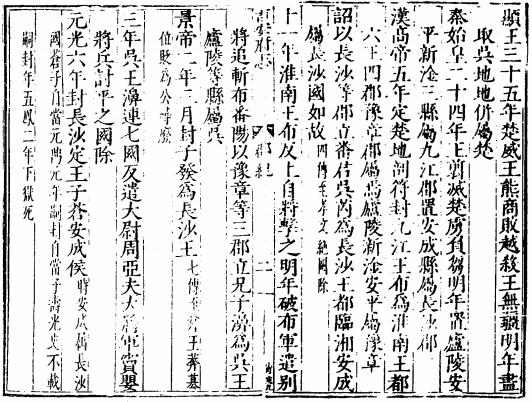 顯王三十五年楚威王熊商敗越殺王無彊明年盡
取吳地地併屬楚
秦始皇二十四年王翦滅楚虜負芻明年置廬陵安
平新淦三縣屬九江郡置安成縣屬長沙郡
漢高帝五年定楚地剖符封九江王布為淮南王都
六王四郡豫章郡屬焉廬陵新淦安平屬豫章
詔以長沙等郡立番君吳芮為長沙王都臨湘安成
屬長沙國如故 四傳至孝文絕國除
十一年淮南王布反上自將擊之明年破布軍遣別
將追斬布番陽以豫章等三郡立兄子濞為吳王
廬陵等縣屬吳
景帝二年三月封子發為長沙王 七傳 王莽篡
位貶為公尋廢
三年吳王濞連七國反遣大尉周亞夫大將軍竇嬰
將兵討平之國除
元光六年封長沙定王子蒼安成侯 時安成屬長沙
國蒼子自當元鼎元年嗣封自當子壽光史不載
嗣封年五鳳二年下獄死